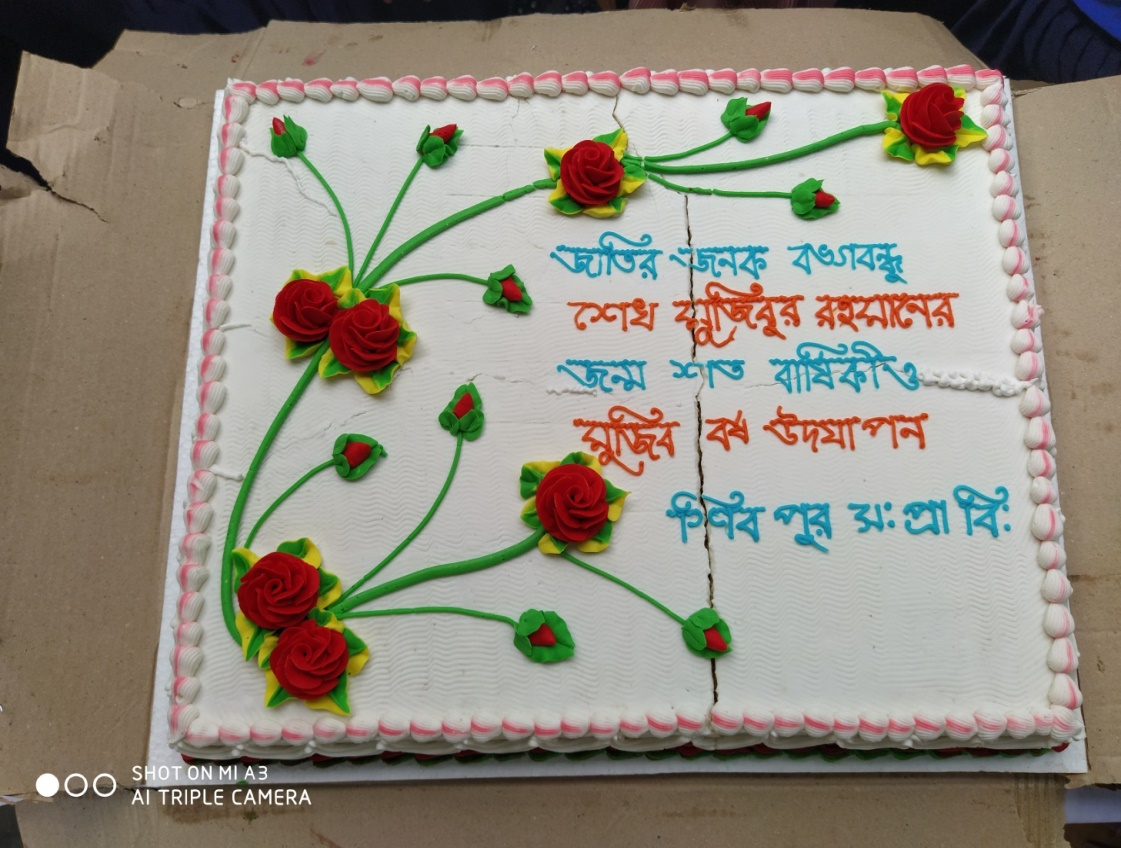 জাতির জনক বঙ্গবন্ধু
শেখ মুজিবুর রহমানের
জন্ম শত বার্ষিকী ও
মুজিব বর্ষ উদযাপন
পুর সঃ প্রা বিঃ
SHOT ON MI A3
AI TRIPLE CAMERA